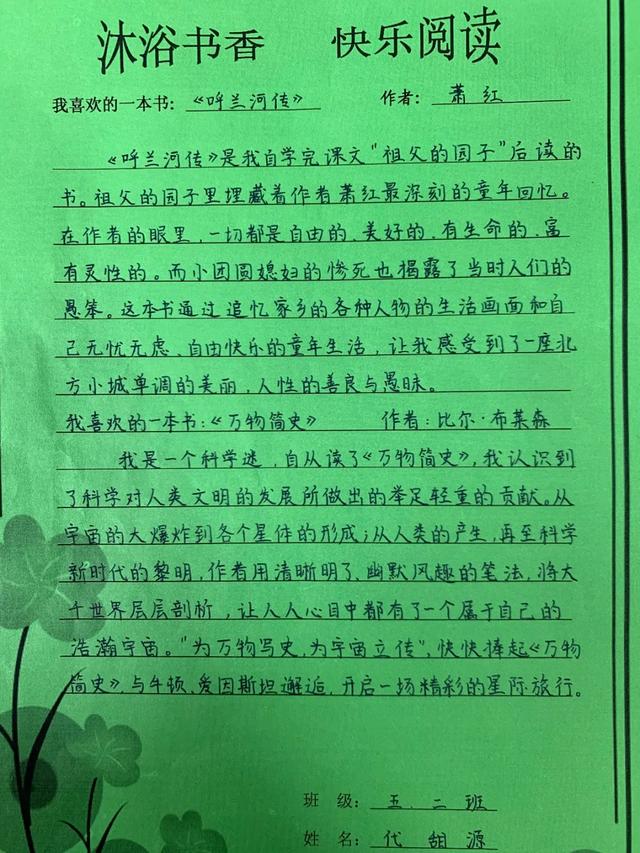 沐浴书香 快乐阅读
我喜欢的一本书:《呼兰河传》 作者: 萧红
《呼兰河传》是我自学完课文"祖父的园子"后读的
书。祖父的园子里埋藏着作者萧红最深刻的童年回忆。
在作者的眼里,一切都是自由的、美好的、有生命的、富
有灵性的。而小团圆媳妇的惨死也揭露了当时人们的
愚笨。这本书通过追忆家乡的各种人物的生活画面和自
己无忧无虑、自由快乐的童年生活,让我感受到了一座北
方小城单调的美丽,人性的善良与愚昧。
我喜欢的一本书:《万物简史》 作者:比尔·布莱森
我是一个科学迷,自从读了《万物简史》,我认识到
了科学对人类文明的发展所做出的举足轻重的贡献。从
宇宙的大爆炸到各个星体的形成;从人类的产生,再至科学
新时代的黎明,作者用清晰明了、幽默风趣的笔法,将大
千世界层层剖析,让人人心目中都有了一个属于自己的
浩瀚宇宙。"为万物写史,为宇宙立传",快快捧起《万物
简史》,与牛顿、爱因斯坦邂逅,开启一场精彩的星际旅行。
班 级: 五.二班
姓 名: 代胡源